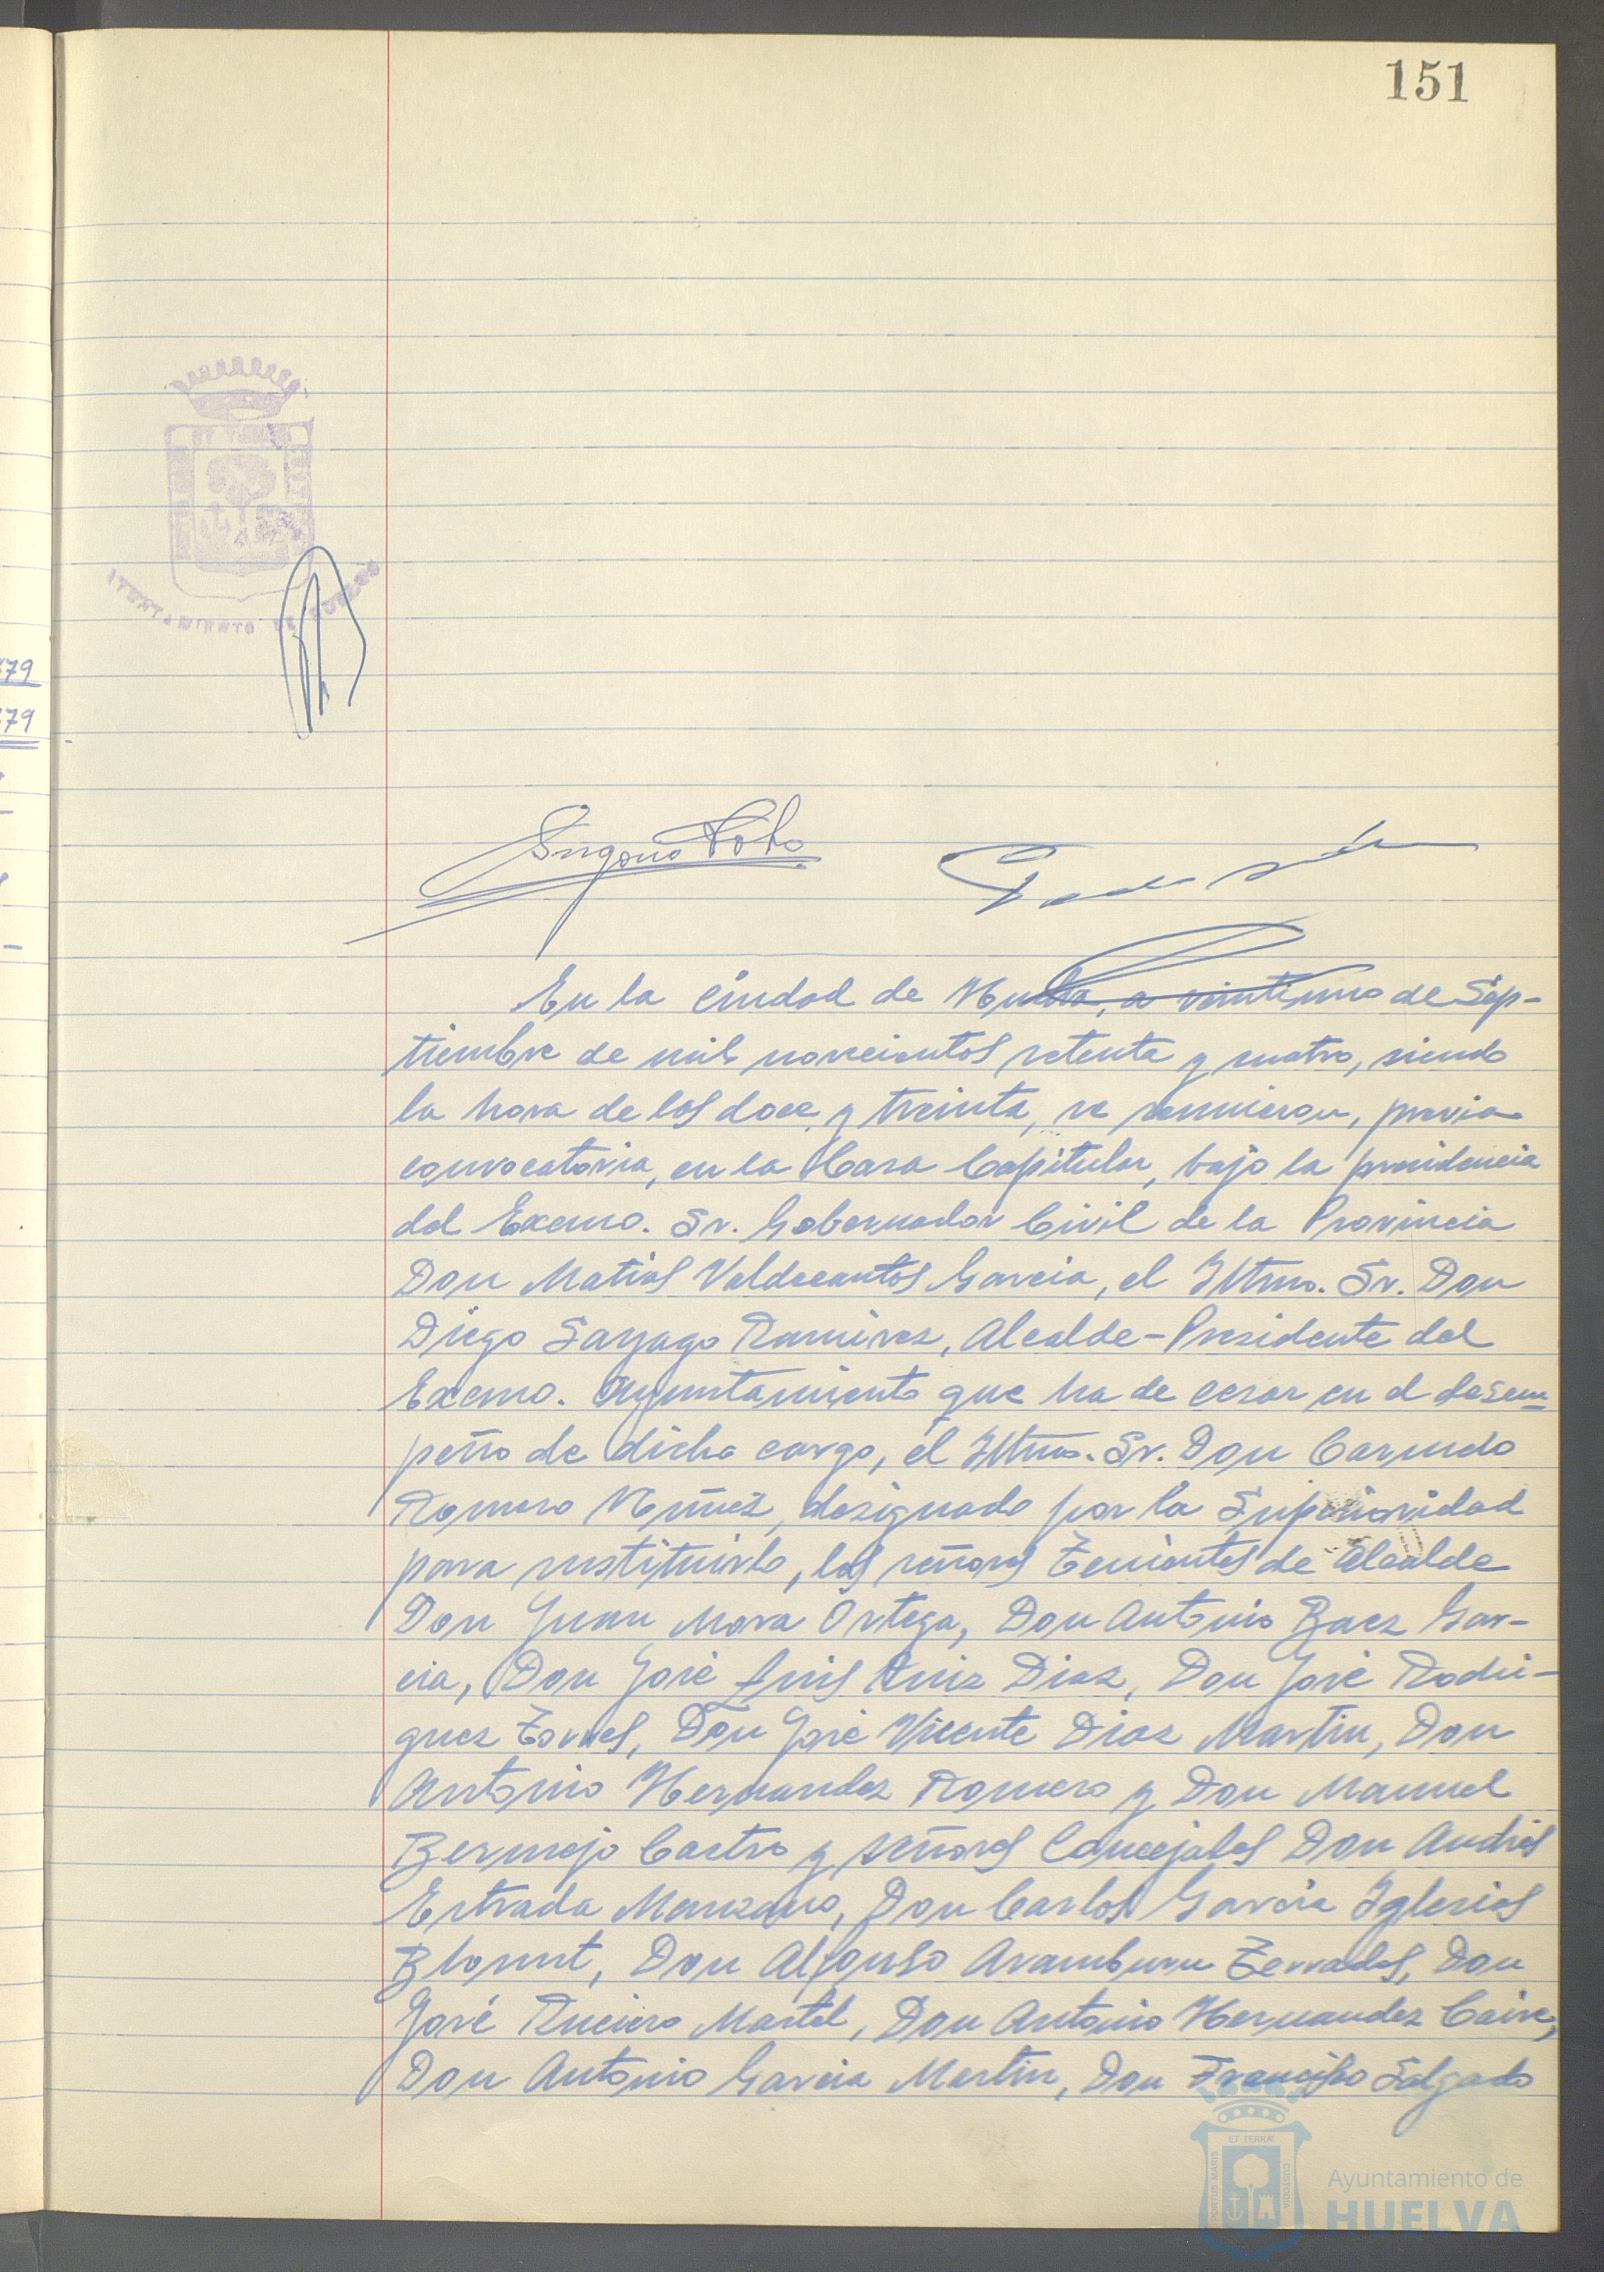 151
En la Ciudad de Huelva, a veintiuno de Sep-
tiembre de mil novecientos setenta y cuatro, siendo
la hora de las doce y treinta, se reunieron, previa
convocatoria, en la Casa Capitular, bajo la presidencia
del Excmo. Sr. Gobernador Civil de la Provincia
Don Matias Valdecantos Garcia, el Iltmo. Sr. Don
Diego Sayago Ramirez, Alcalde-Presidente del
Excmo. Ayuntamiento que ha de cesar en el desem-
peño de dicho cargo, el Iltmo. Sr. Don Carmelo
Romero Núñez, designado por la Superioridad
para sustituirlo, los señores Tenientes de Alcalde
Don Juan Mora Ortega, Don Antonio Baez Gar-
cia, Don José Luis Ruiz Diaz, Don José Rodri-
guez Torres, Don José Vicente Diaz Martin, Don
Antonio Hernandez Romero y Don Manuel
Bermejo Castro y señores Concejales Don Andrés
Estrada Manzano, Don Carlos Garcia Iglesias
Blount, Don Alfonso Aramburu Terrades, Don
José Ruciero Martel, Don Antonio Hernandez Caire,
Don Antonio Garcia Martin, Don Francisco Salgado
679
679
ET TERRAE
PORTUS MARIS
CUSTODIA
Ayuntamiento de
HUELVA